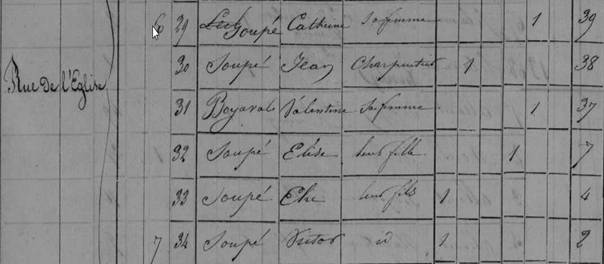 6 29 Soupé Catherine sa femme 1 39
30 Soupé Jean Charpentier 1 38
Rue De l'Eglise
31 Boyaval Valentine sa femme 1 37
32 Soupé Elise leur fille 1 7
33 Soupé Elie leur fils 1 4
7 34 Soupé Victor id 1 2